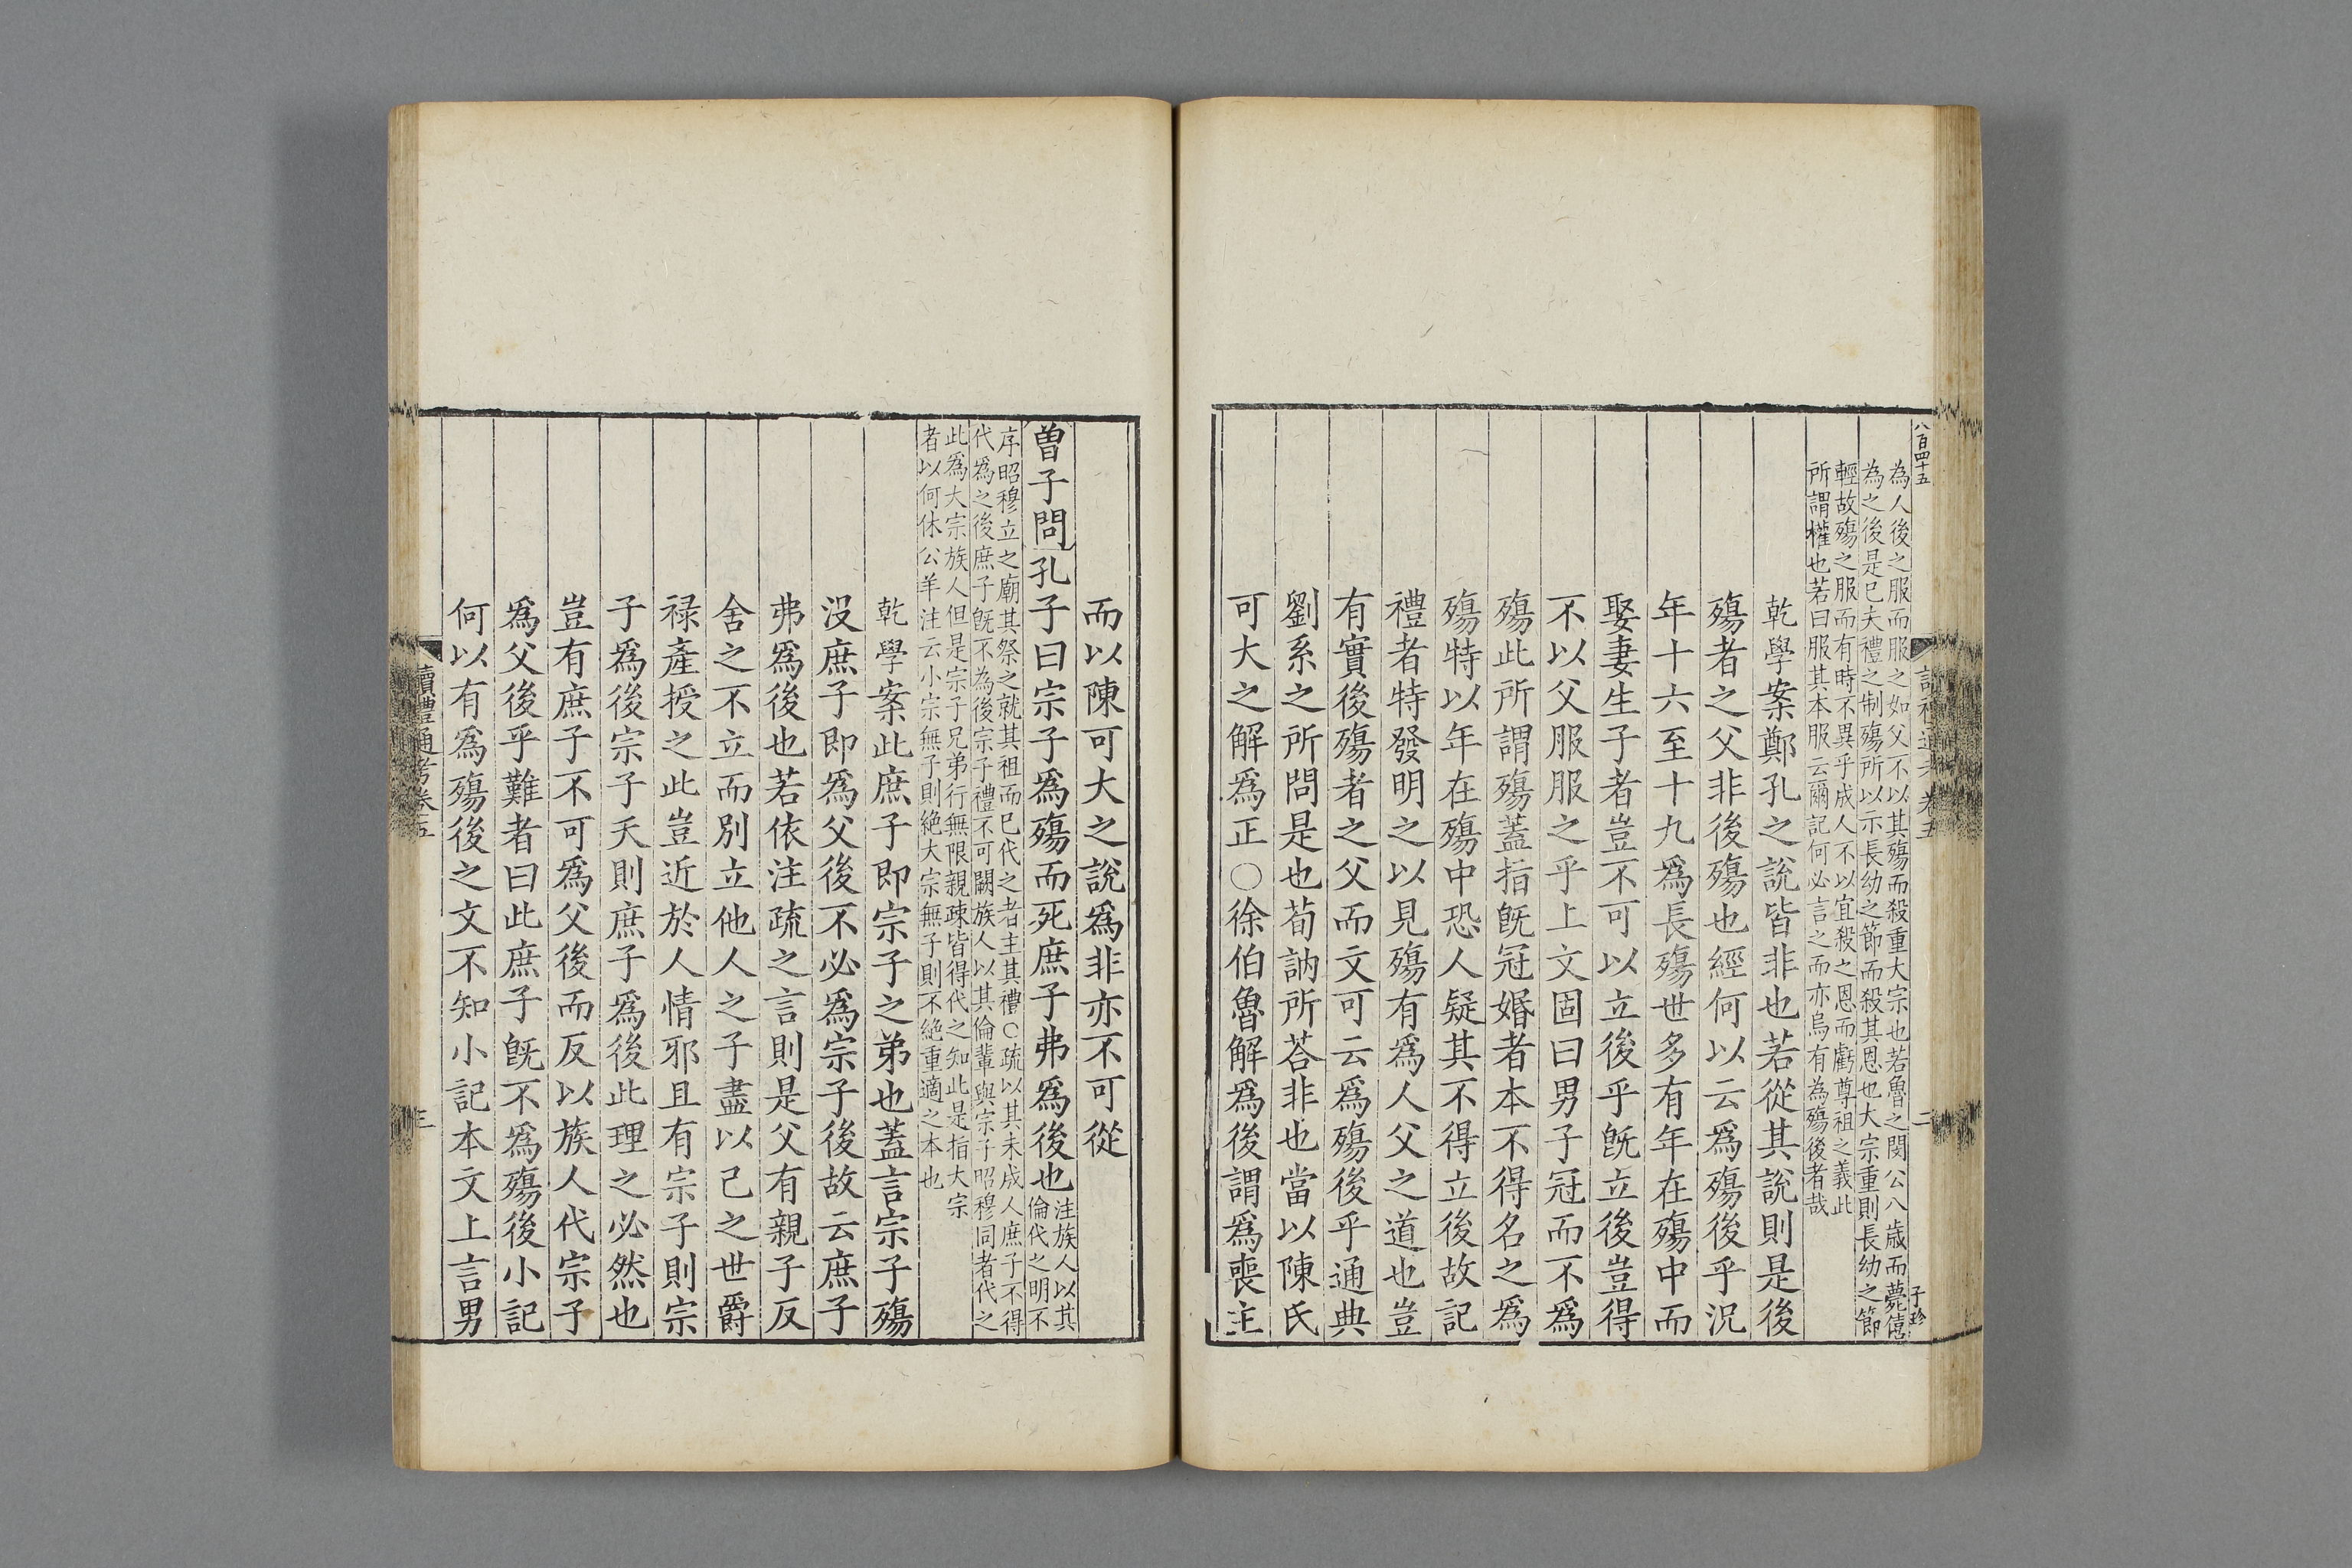 八百四十五
二
子珍
為人後之服而服之如父不以其殤而殺重大宗也若魯之閔公八歲而薨僖
為之後是已夫禮之制殤所以示長幼之節而殺其恩也大宗重則長幼之節
輕故殤之服而有時不異乎成人不以宜殺之恩而虧尊祖之義此
所謂權也若曰服其本服云爾記何必言之而亦烏有為殤後者哉
乾學案鄭孔之說皆非也若從其說則是後
殤者之父非後殤也經何以云爲殤後乎況
年十六至十九爲長殤世多有年在殤中而
娶妻生子者豈不可以立後乎旣立後豈得
不以父服服之乎上文固曰男子冠而不爲
殤此所謂殤蓋指旣冠婚者本不得名之爲
殤特以年在殤中恐人疑其不得立後故記
禮者特發明之以見殤有爲人父之道也豈
有實後殤者之父而文可云爲殤後乎通典
劉系之所問是也荀訥所荅非也當以陳氏
可大之解爲正○徐伯魯解爲後謂爲喪主
而以陳可大之說爲非亦不可從
曾子問孔子曰宗子爲殤而死庶子弗爲後也
注族人以其
倫代之明不
序昭穆立之廟其祭之就其祖而已代之者主其禮○疏以其未成人庶子不得
代為之後庶子旣不為後宗子禮不可闕族人以其倫輩與宗子昭穆同者代之
此為大宗族人但是宗子兄弟行無限親疎皆得代之知此是指大宗
者以何休公羊注云小宗無子則絶大宗無子則不絶重適之本也
乾學案此庶子即宗子之弟也蓋言宗子殤
沒庶子即爲父後不必爲宗子後故云庶子
弗爲後也若依注疏之言則是父有親子反
舍之不立而別立他人之子盡以己之世爵
禄產授之此豈近於人情邪且有宗子則宗
子爲後宗子夭則庶子爲後此理之必然也
豈有庶子不可爲父後而反以族人代宗子
爲父後乎難者曰此庶子旣不爲殤後小記
何以有爲殤後之文不知小記本文上言男
讀禮通考卷五
三